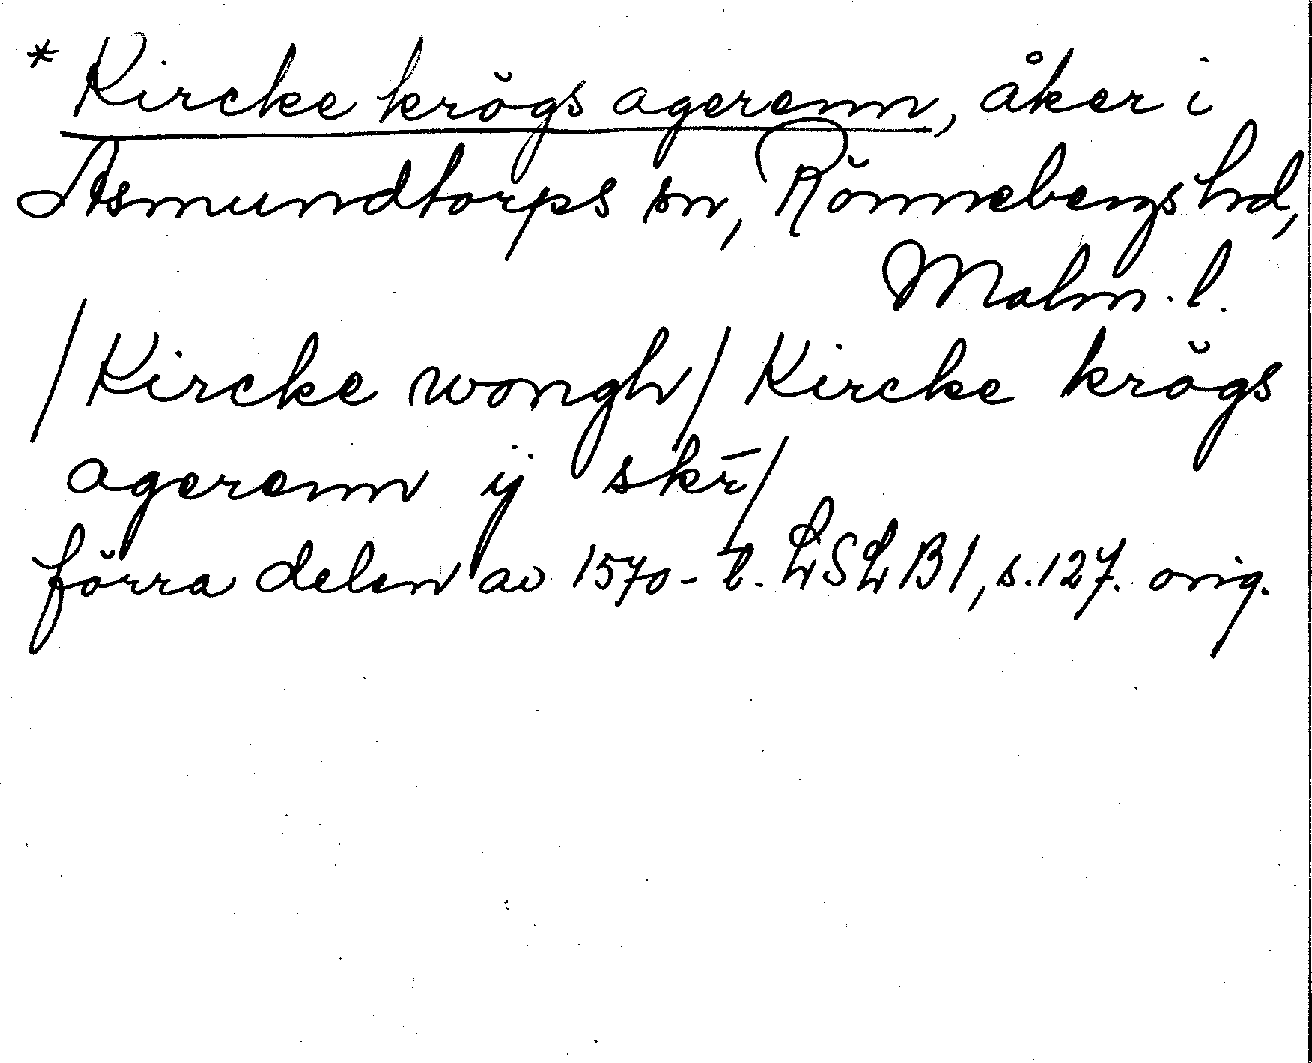 * Kircke krögs agerenn, åker i
Asmundtorps sn, Rönnebergs hd,
Malm. l.
/Kircke wongh/ Kircke krögs
agerenn ij skr̄/
förra delen av 1570-t. LSLB1, s.127. orig.